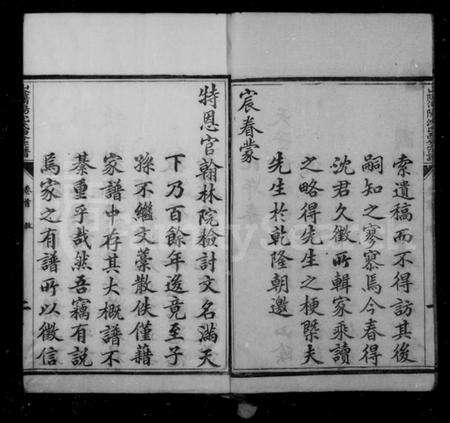 索遺稿而不得訪其後
嗣知之寥寥焉今春得
沈君久徵所輯家乘讀
之略得先生之梗槩夫
先生於乾隆朝邀
宸眷蒙
特恩官翰林院檢討文名滿天
下乃百餘年後竟至子
孫不繼文藁散佚僅藉
家譜中存其大概譜不
綦重乎哉然吾竊有説
焉家之有譜所以徵信
卷首
二